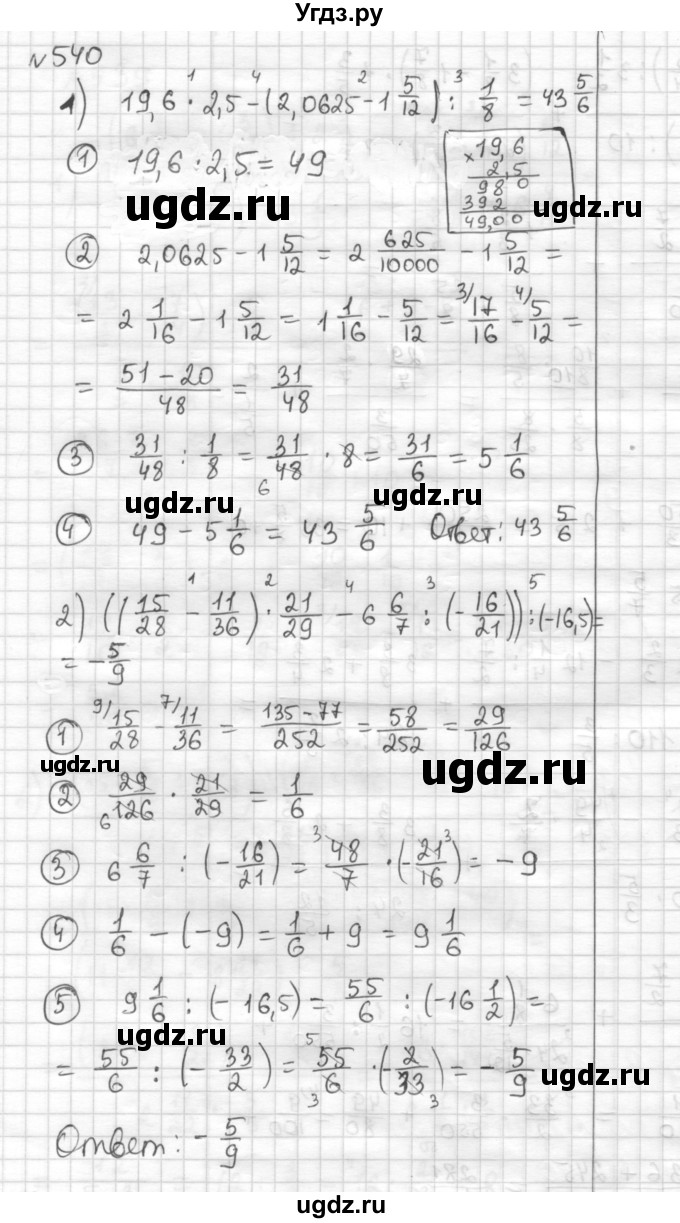 Угдз.ру
№540
1) 19,6 · 2,5 - (2,0625 - 1 5/12) : 1/8 = 43 5/6
① 19,6 : 2,5 = 49
× 19,6
2,5
98 0
392
49,00
ugdz.ru ugdz.ru
② 2,0625 - 1 5/12 = 2 625/10000 - 1 5/12 =
= 2 1/16 - 1 5/12 = 1 1/16 - 5/12 = 3/ 17/16 - 4/ 5/12 =
= (51 - 20)/48 = 31/48
③ 31/48 : 1/8 = 31/48 · 8 = 31/6 = 5 1/6
ugdz.ru ugdz.ru
④ 49 - 5 1/6 = 43 5/6 Ответ: 43 5/6
2) ((15/28 - 11/36) · 21/29 - 6 6/7 : (-16/21)) : (-16,5) =
= -5/9
① 9/ 15/28 - 7/ 11/36 = (135 - 77)/252 = 58/252 = 29/126
ugdz.ru ugdz.ru
② 29/126 · 21/29 = 1/6
③ 6 6/7 : (-16/21) = 48/7 · (-21/16) = -9
④ 1/6 - (-9) = 1/6 + 9 = 9 1/6
⑤ 9 1/6 : (-16,5) = 55/6 : (-16 1/2) =
ugdz.ru
= 55/6 : (-33/2) = 55/6 · (-2/33) = -5/9
ugdz.ru
Ответ: -5/9
ugdz.ru